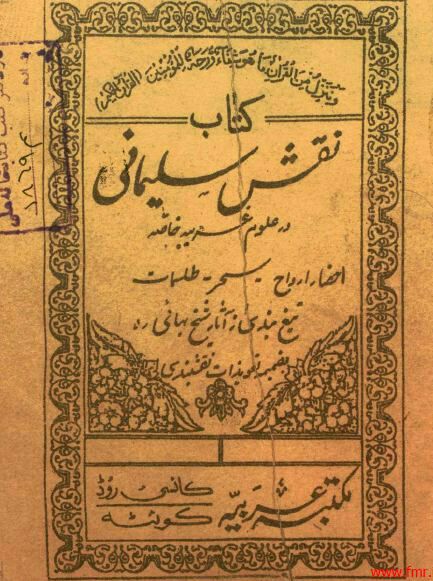 وننزل من القرآن ما هو شفاء ورحمة للمؤمنين (القرآن الحکیم)
کتاب
نقش سلیمانی
در علوم غریبه خافیه
احضار ارواح - سحر - طلسمات
تیغ بندی از آثار شیخ بهائی ره
بضمیمه تعویذات نقشبندی
مکتبه عربیه
کانسی روڈ
کوئٹه
۱۸۶۹۴
www.fmr.